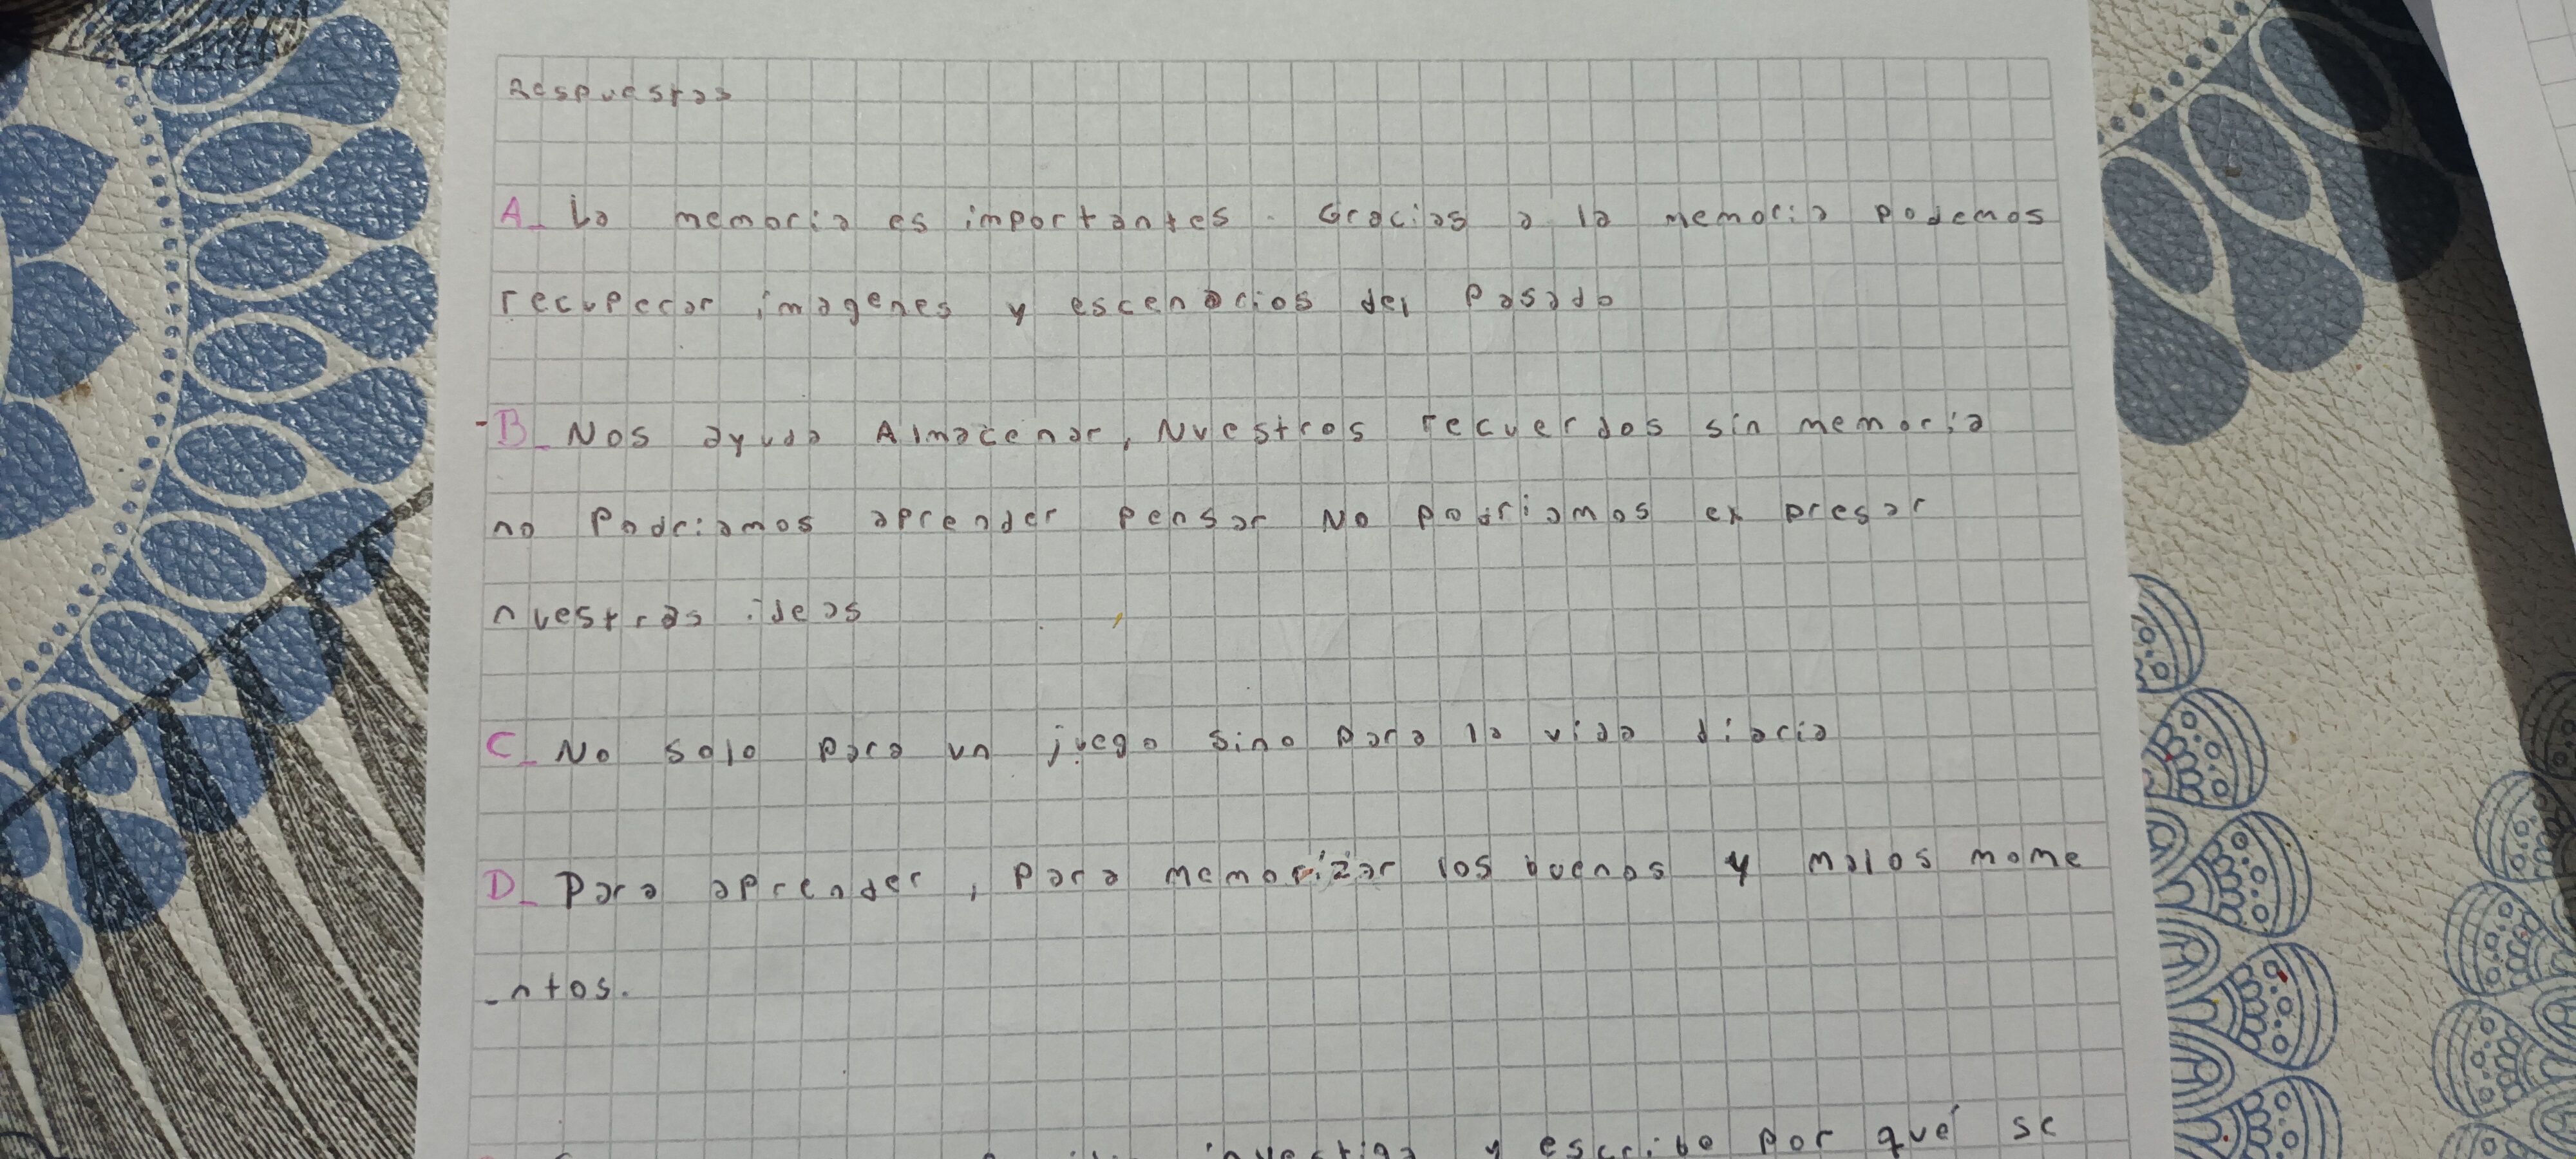 Respuestas
A_ La memoria es importantes. Gracias a la memoria podemos
recuperar imagenes y escenarios del pasado
-B_ Nos ayuda Almacenar, Nuestros recuerdos sin memoria
no Podriamos aprender pensar No podriamos ex presar
nuestras ideas
C_ No solo para un juego sino para la vida diaria
D_ Para aprender, para memorizar los buenos y malos mome
-ntos.
investiga y escribo por qué se